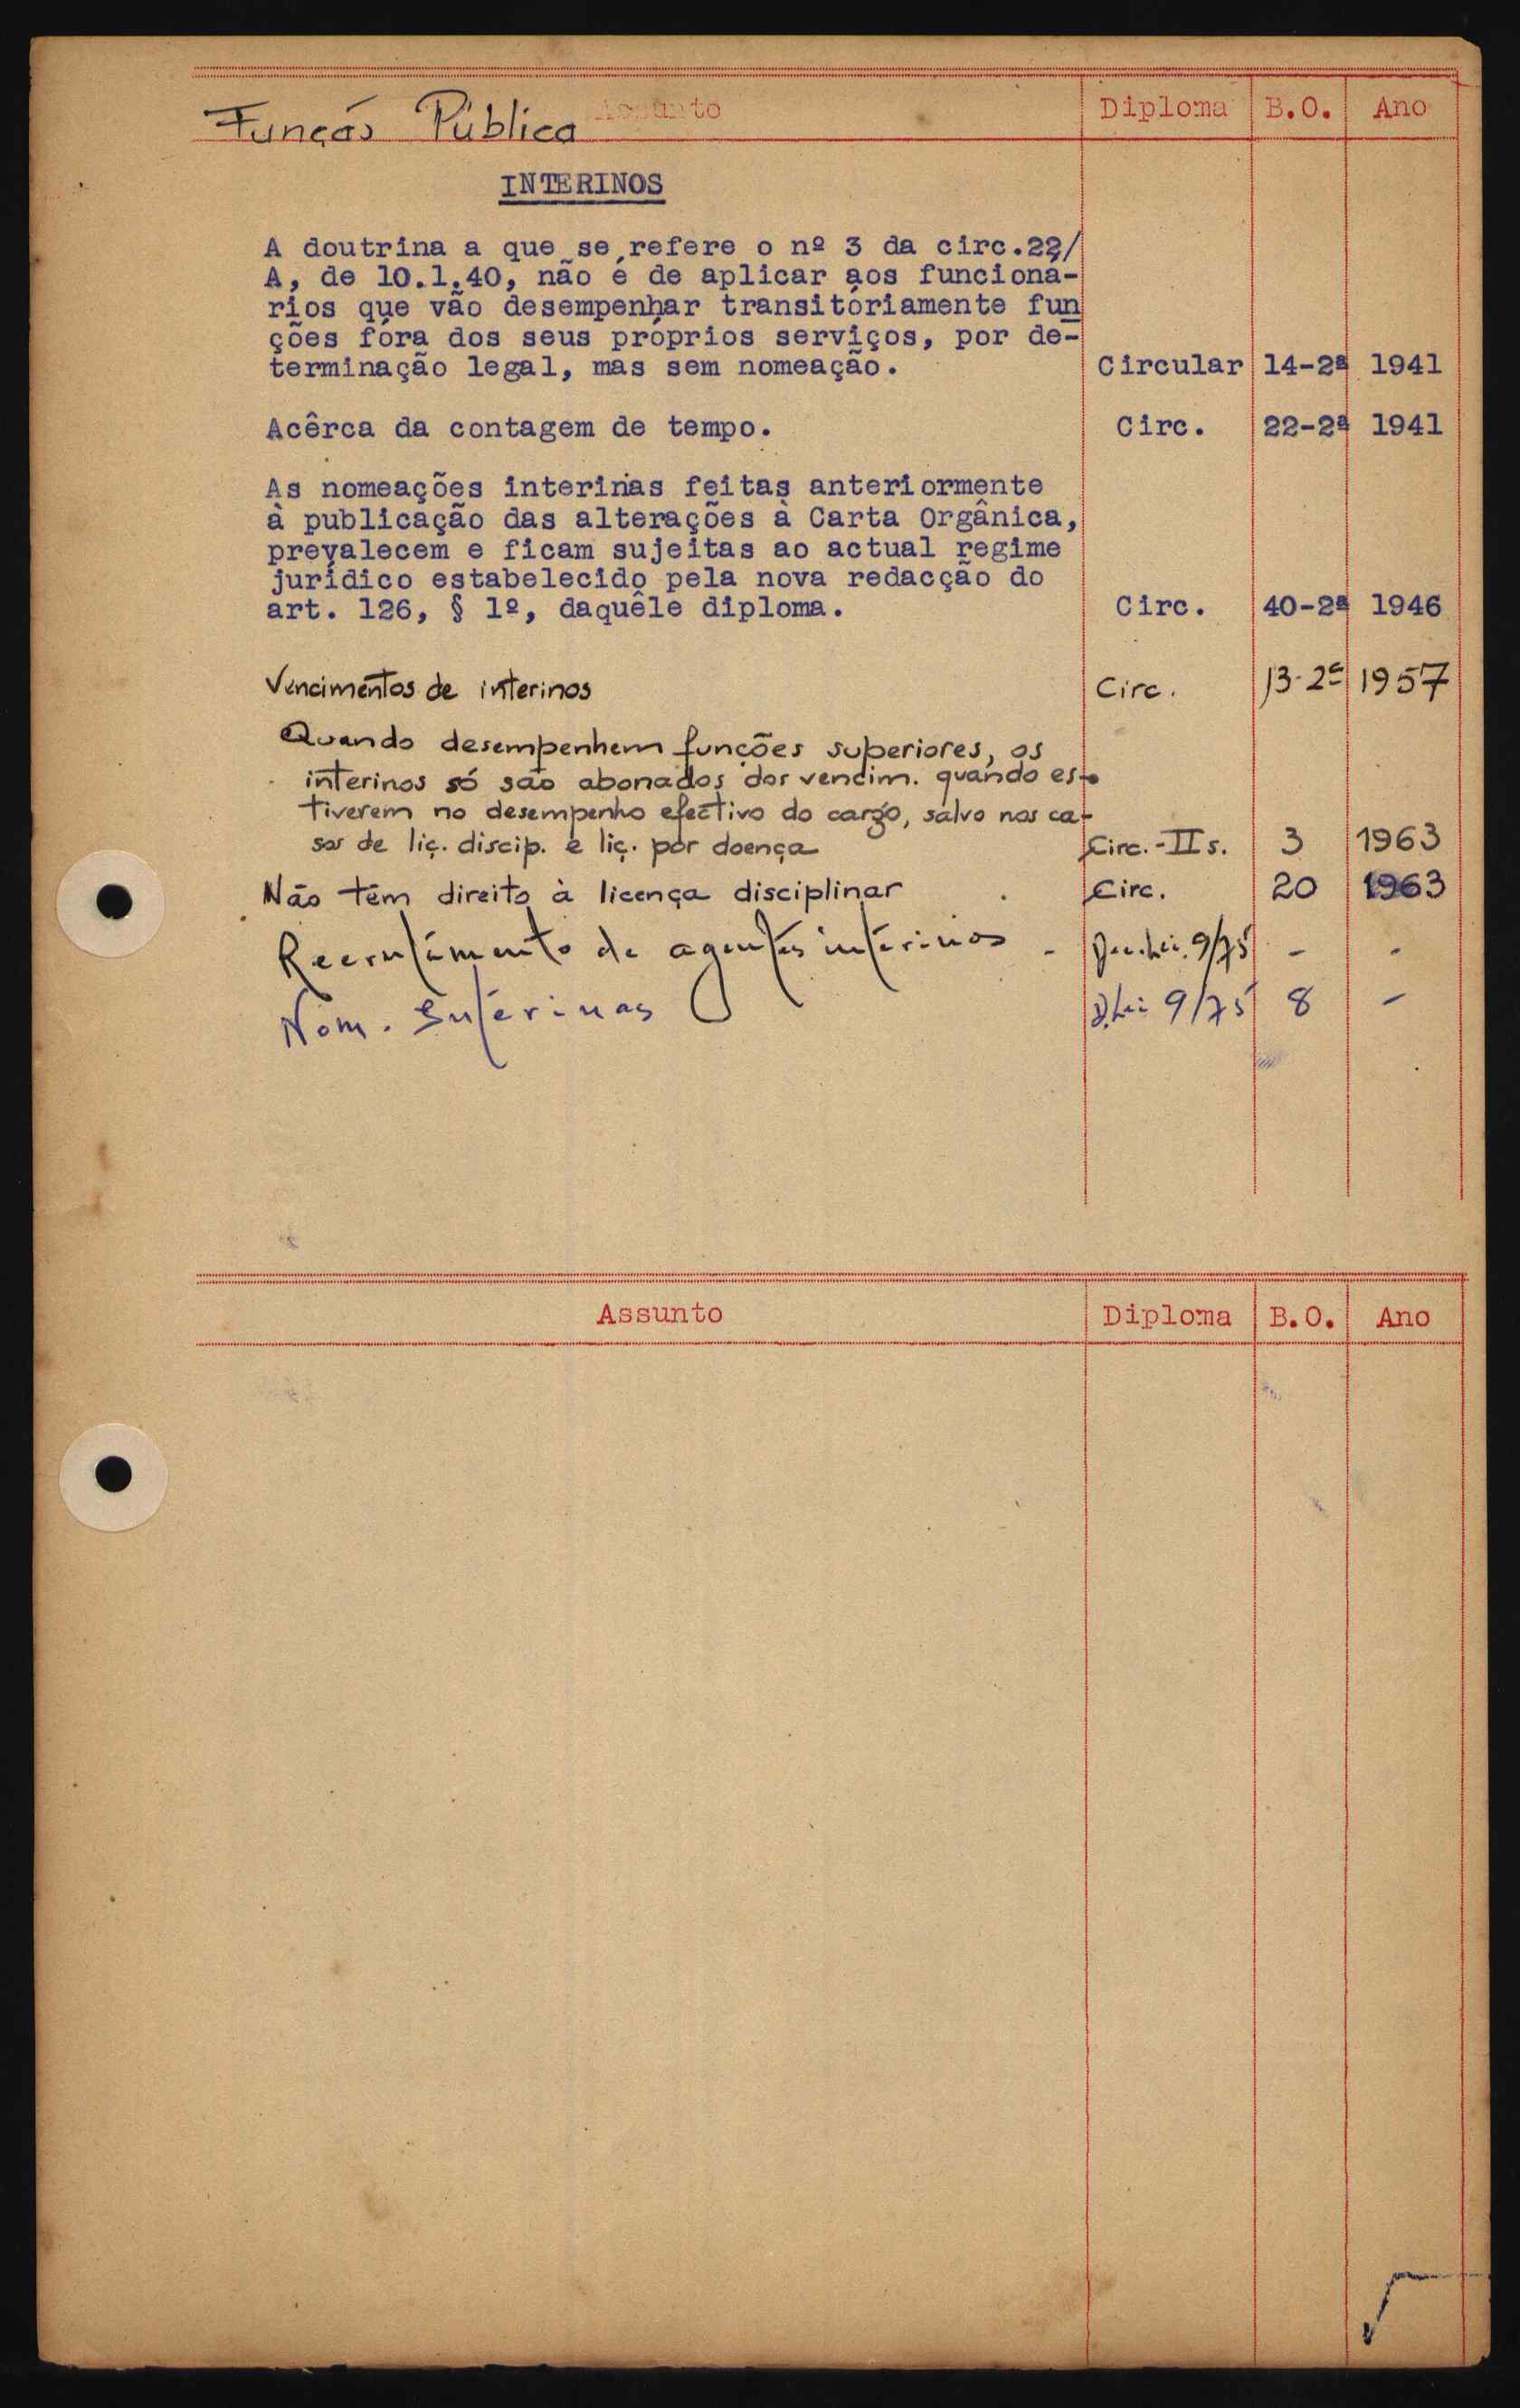 Função Pública Assunto Diploma B.O. Ano
INTERINOS
A doutrina a que se refere o nº 3 da circ.22/
A, de 10.1.40, não é de aplicar aos funcioná-
rios que vão desempenhar transitóriamente fun
ções fóra dos seus próprios serviços, por de-
terminação legal, mas sem nomeação. Circular 14-2ª 1941
Acêrca da contagem de tempo. Circ. 22-2ª 1941
As nomeações interinas feitas anteriormente
à publicação das alterações à Carta Orgânica,
prevalecem e ficam sujeitas ao actual regime
jurídico estabelecido pela nova redacção do
art. 126, § 1º, daquêle diploma. Circ. 40-2ª 1946
Vencimentos de interinos Circ. 13-2ª 1957
Quando desempenhem funções superiores, os
interinos só são abonados dos vencim. quando es-
tiverem no desempenho efectivo do cargo, salvo nos ca-
sos de liç. discip. e liç. por doença Circ.-II s. 3 1963
Não têm direito à licença disciplinar Circ. 20 1963
Recrutamento de agentes interinos - Dec.Lei. 9/75 - -
Nom. Interinas D.Lei 9/75 8 -
Assunto Diploma B.O. Ano